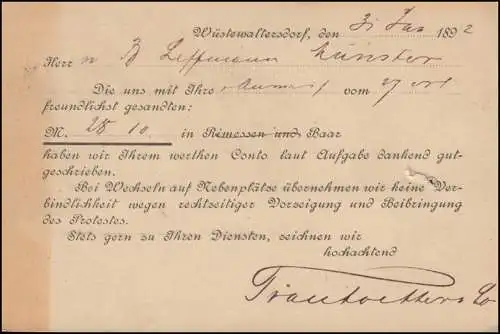 Wüstewaltersdorf, den 31 Jan 1892
Herr n B Leffmann Münster
Die uns mit Ihre vom 29 crt
freundlichst gesandten:
M. 28 10 in Rimessen und Baar
haben wir Ihrem werthen Conto laut Aufgabe dankend gut-
geschrieben.
Bei Wechseln auf Nebenplätze übernehmen wir keine Ver-
bindlichkeit wegen rechtzeitiger Vorzeigung und Beibringung
des Protestes.
Stets gern zu Ihren Diensten, zeichnen wir
hochachtend